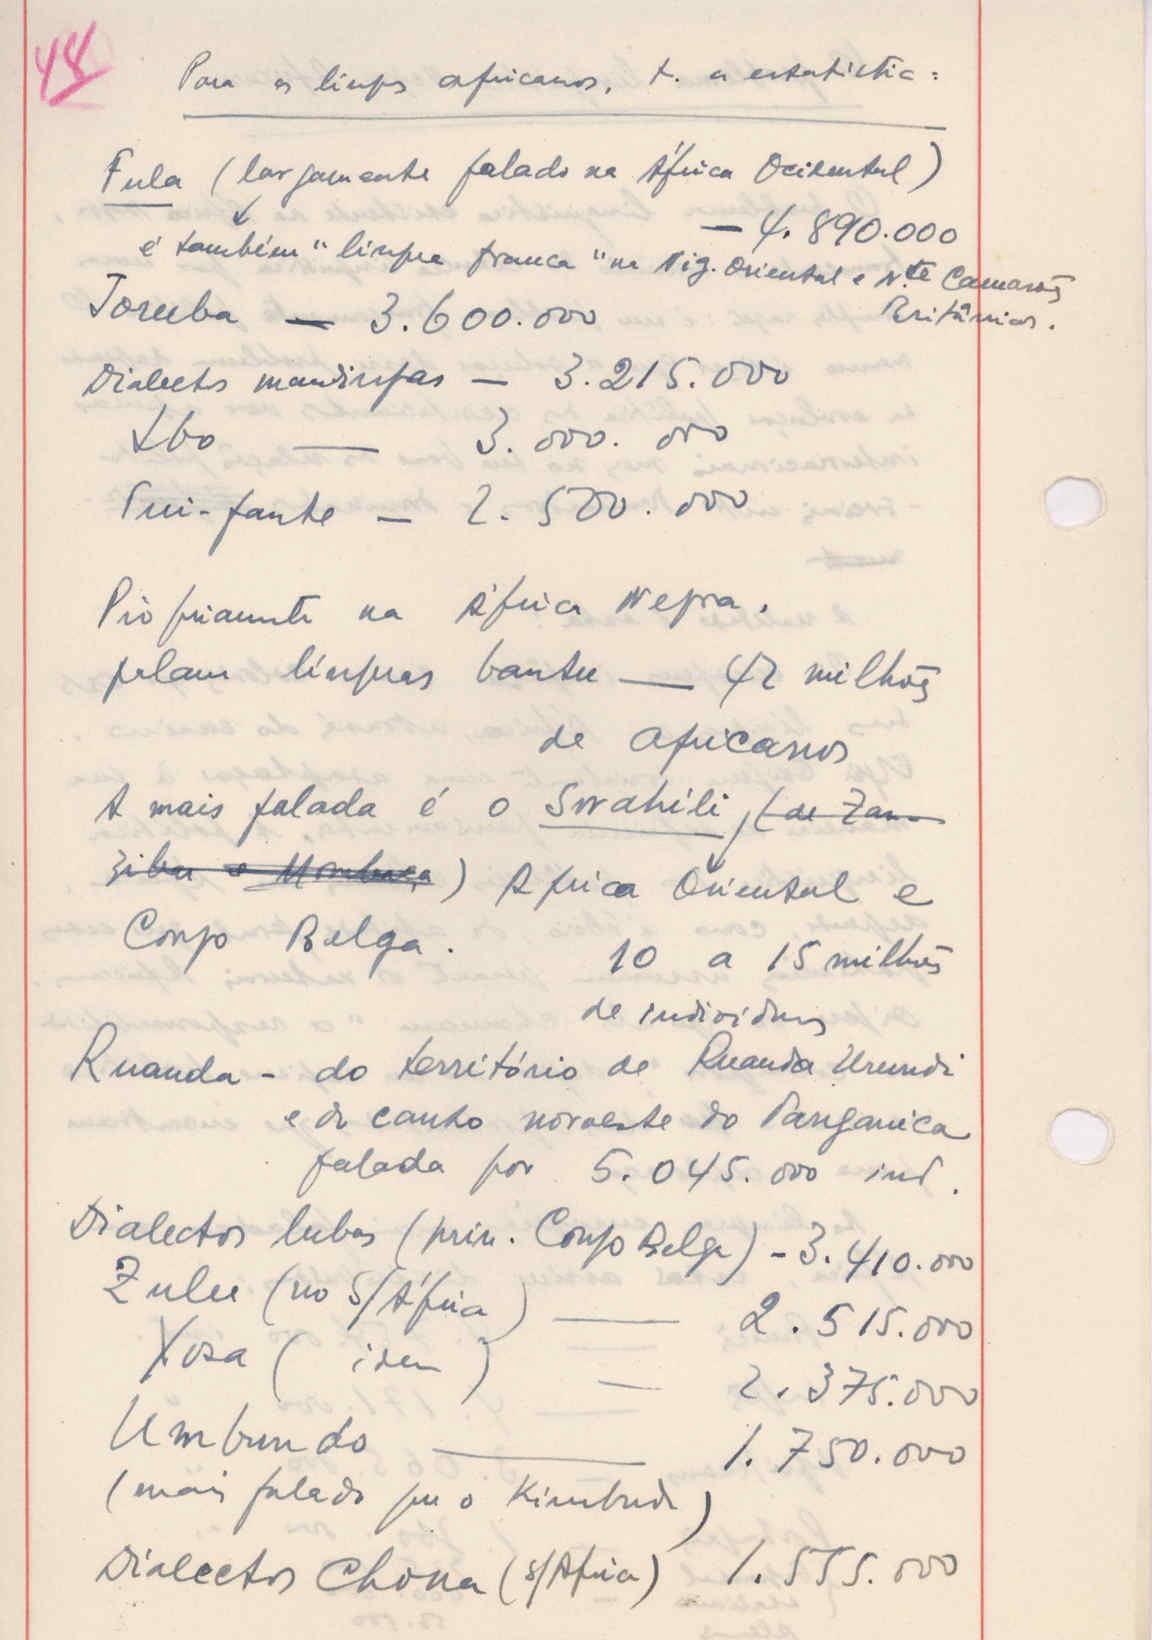 48
Para as línguas africanas, t. a estatística:
Fula (largamente falado na África Ocidental)
— 4.890.000
é também "língua franca" na Nig. Oriental e N.te Camarões
Britânicos.
Ioruba — 3.600.000
Dialectos mandingas — 3.215.000
Ibo — 3.000.000
Tui-fante — 2.500.000
Propriamente na África Negra.
falam línguas bantu — 42 milhões
de africanos
A mais falada é o Swahili, (de Zan-
zibar e Mombaça) África Oriental e
Congo Belga.
10 a 15 milhões
de indivíduos
Ruanda - do território de Ruanda Urundi
e do canto noroeste do Tanganica
falada por 5.045.000 ind.
Dialectos lubas (prin. Congo Belga) - 3.410.000
Zulu (no S/África) — 2.515.000
Xosa (idem) — 2.375.000
Umbundo — 1.750.000
(mais falado que o Kimbundo)
Dialectos Chona (S/África) 1.555.000